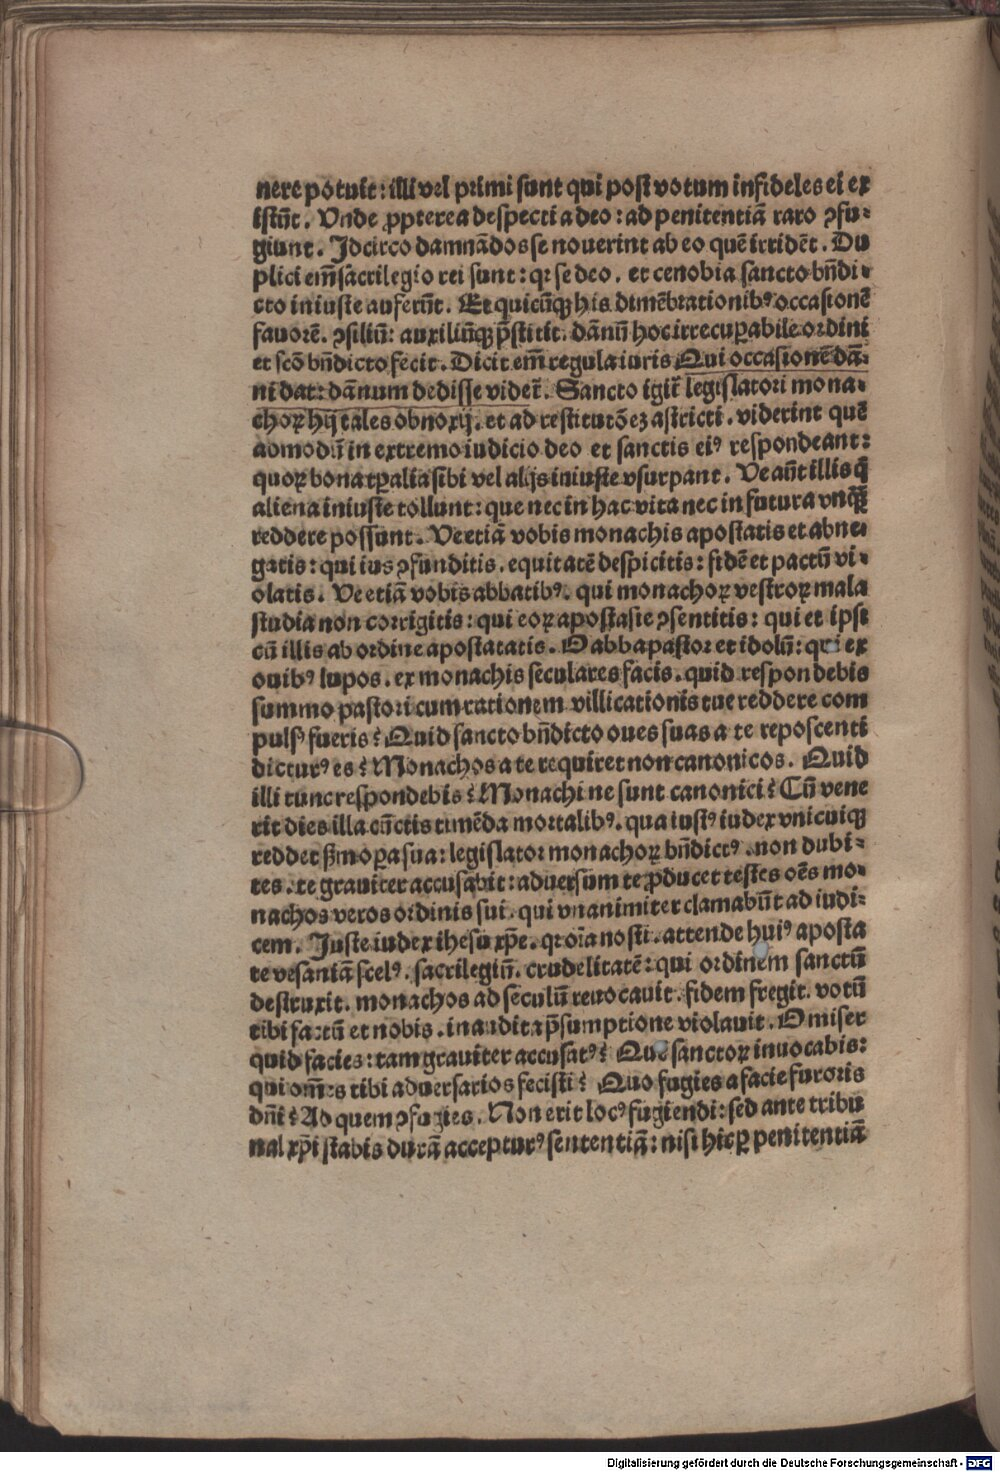 nere potuit: illi vel primi sunt qui post votum infideles ei ex
istūt. Vnde ꝓpterea despecti a deo: ad penitentiā raro ꝯfu⸗
giunt. Idcirco damnādos se nouerint ab eo quē irridēt. Du
plici em̄ sacrilegio rei sunt: qꝛ se deo. et cenobia sancto bn̄di⸗
cto iniuste auferūt. Et quicūqꝫ his dimēbrationibꝰ occasionē
fauorē. ꝯsiliū: auxiliūqꝫ p̄stitit. dānū hoc irrecuꝑabile ordini
et scō bn̄dicto fecit. Dicit em̄ regula iuris Qui occasionē dā⸗
ni dat: dānum dedisse videt̄. Sancto igit̄ legislatori mona⸗
choꝝ hij tales obnoxij. et ad restitutōeꝫ astricti. viderint quē
aomodū in extremo iudicio deo et sanctis eiꝰ respondeant:
quoꝝ bona tꝑalia sibi vel alijs iniuste vsurpant. Ve aūt illis q̄
aliena iniuste tollunt: que nec in hac vita nec in futura vnq̄ꝫ
reddere possunt. Ve etiā vobis monachis apostatis et abne⸗
gatis: qui ius ꝯfunditis. equitatē despicitis: fidē et pactū vi⸗
olatis. Ve etiā vobis abbatibꝰ. qui monachoꝝ vestroꝝ mala
studia non corrigitis: qui eoꝝ apostasie ꝯsentitis: qui et ipsi
cū illis ab ordine apostatatis. O abba pastor et idolū: qui ex
ouibꝰ lupos. ex monachis seculares facis. quid respondebis
summo pastori cum rationem villicationis tue reddere com
pulsꝰ fueris? Quid sancto bn̄dicto oues suas a te reposcenti
dicturꝰ es? Monachos a te requiret non canonicos. Quid
illi tunc respondebis? Monachi ne sunt canonici? Cū vene
rit dies illa cūctis timēda mortalibꝰ. qua iustꝰ iudex vnicuiqꝫ
reddet ẜm oꝑa sua: legislator monachoꝝ bn̄dictꝰ. non dubi⸗
tes. te grauiter accusabit: aduersum te ꝓducet testes oēs mo⸗
nachos veros ordinis sui. qui vnanimiter clamabūt ad iudi⸗
cem. Juste iudex ihesu xp̄e. qꝛ oīa nosti. attende huiꝰ aposta
te vesaniā scelꝰ. sacrilegiū. crudelitatē: qui ordinem sanctū
destruxit. monachos ad seculū reuocauit. fidem fregit. votū
tibi factū et nobis. inaudita p̄sumptione violauit. O miser
quid facies: tam grauiter accusatꝰ? Quē sanctoꝝ inuocabis:
qui om̄es tibi aduersarios fecisti? Quo fugies a facie furoris
dn̄i? Ad quem ꝯfugies. Non erit locꝰ fugiendi: sed ante tribu
nal xp̄i stabis durā accepturꝰ sententiā: nisi hic ꝑ penitentiā
Digitalisierung gefördert durch die Deutsche Forschungsgemeinschaft - DFG